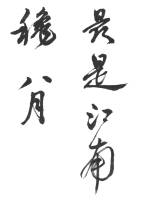 最是江南
秾八月